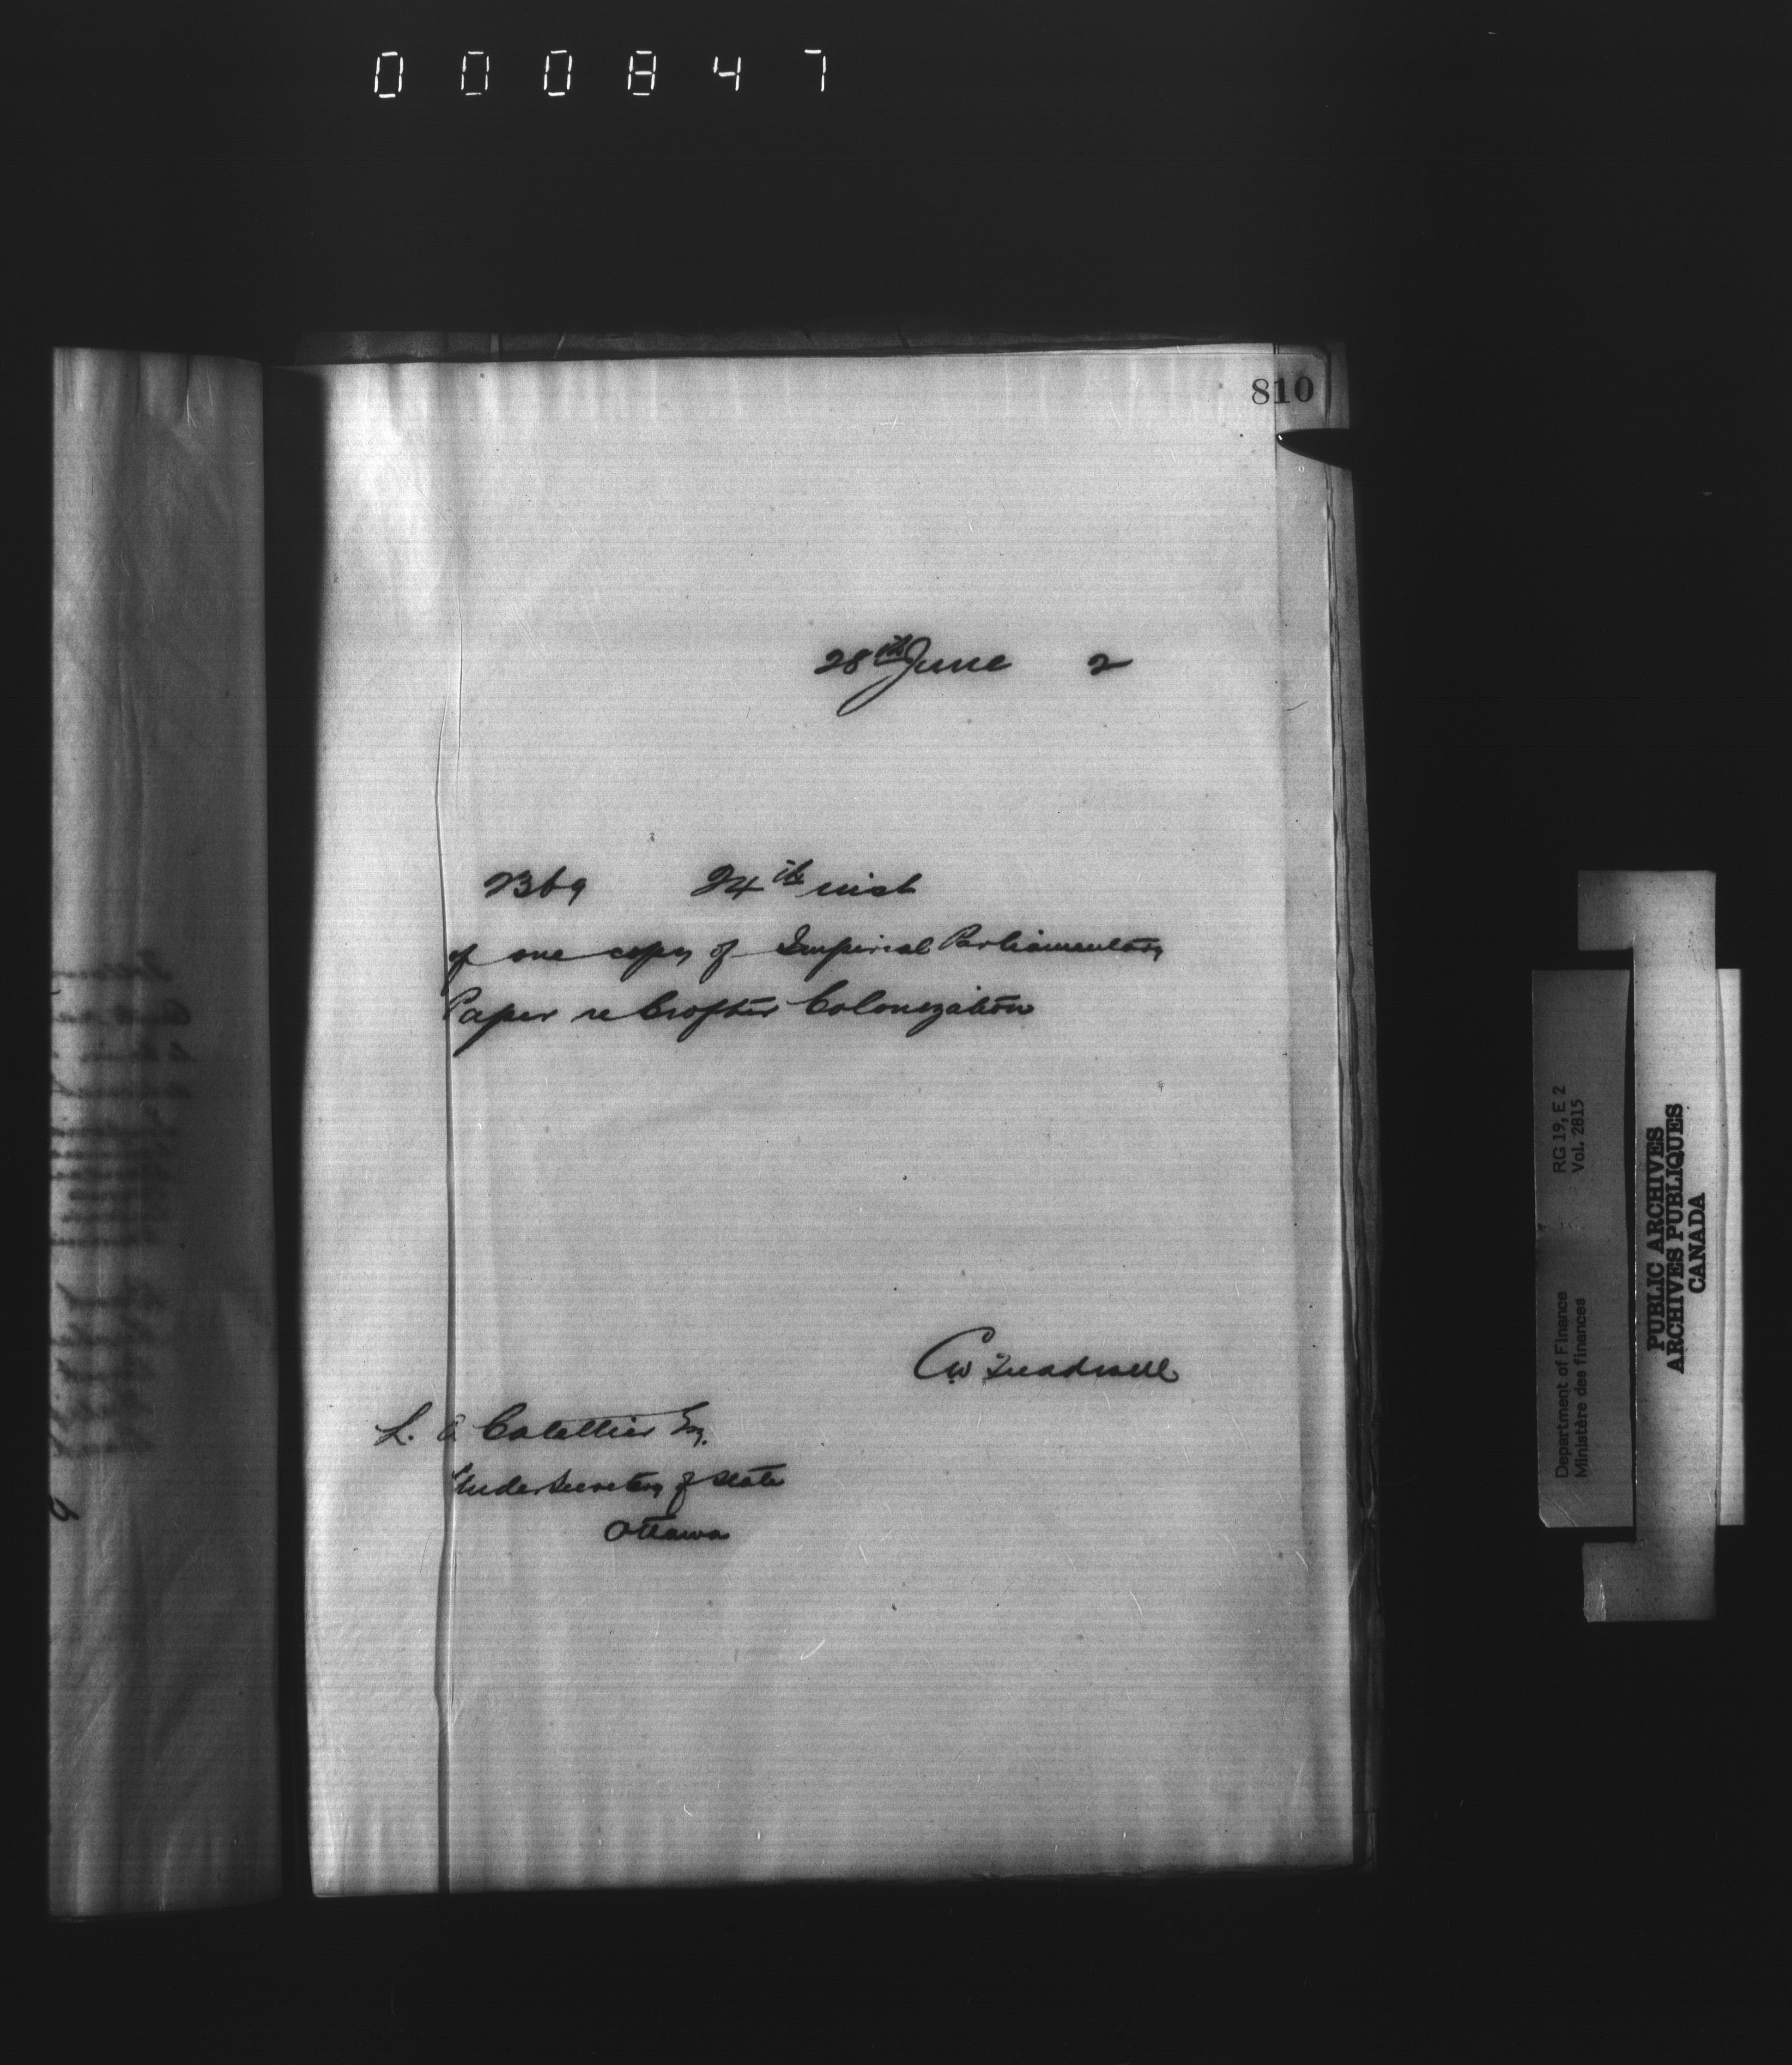 000847
810
28th June 2
2369 24th inst
of one copy of Imperial Parliamentary
Paper re Crofter Colonization
CW Treadwell
L. A. Catellier Esq.
Under Secretary of State
Ottawa
Department of Finance RG 19, E 2
Ministère des finances Vol. 2815
PUBLIC ARCHIVES
ARCHIVES PUBLIQUES
CANADA